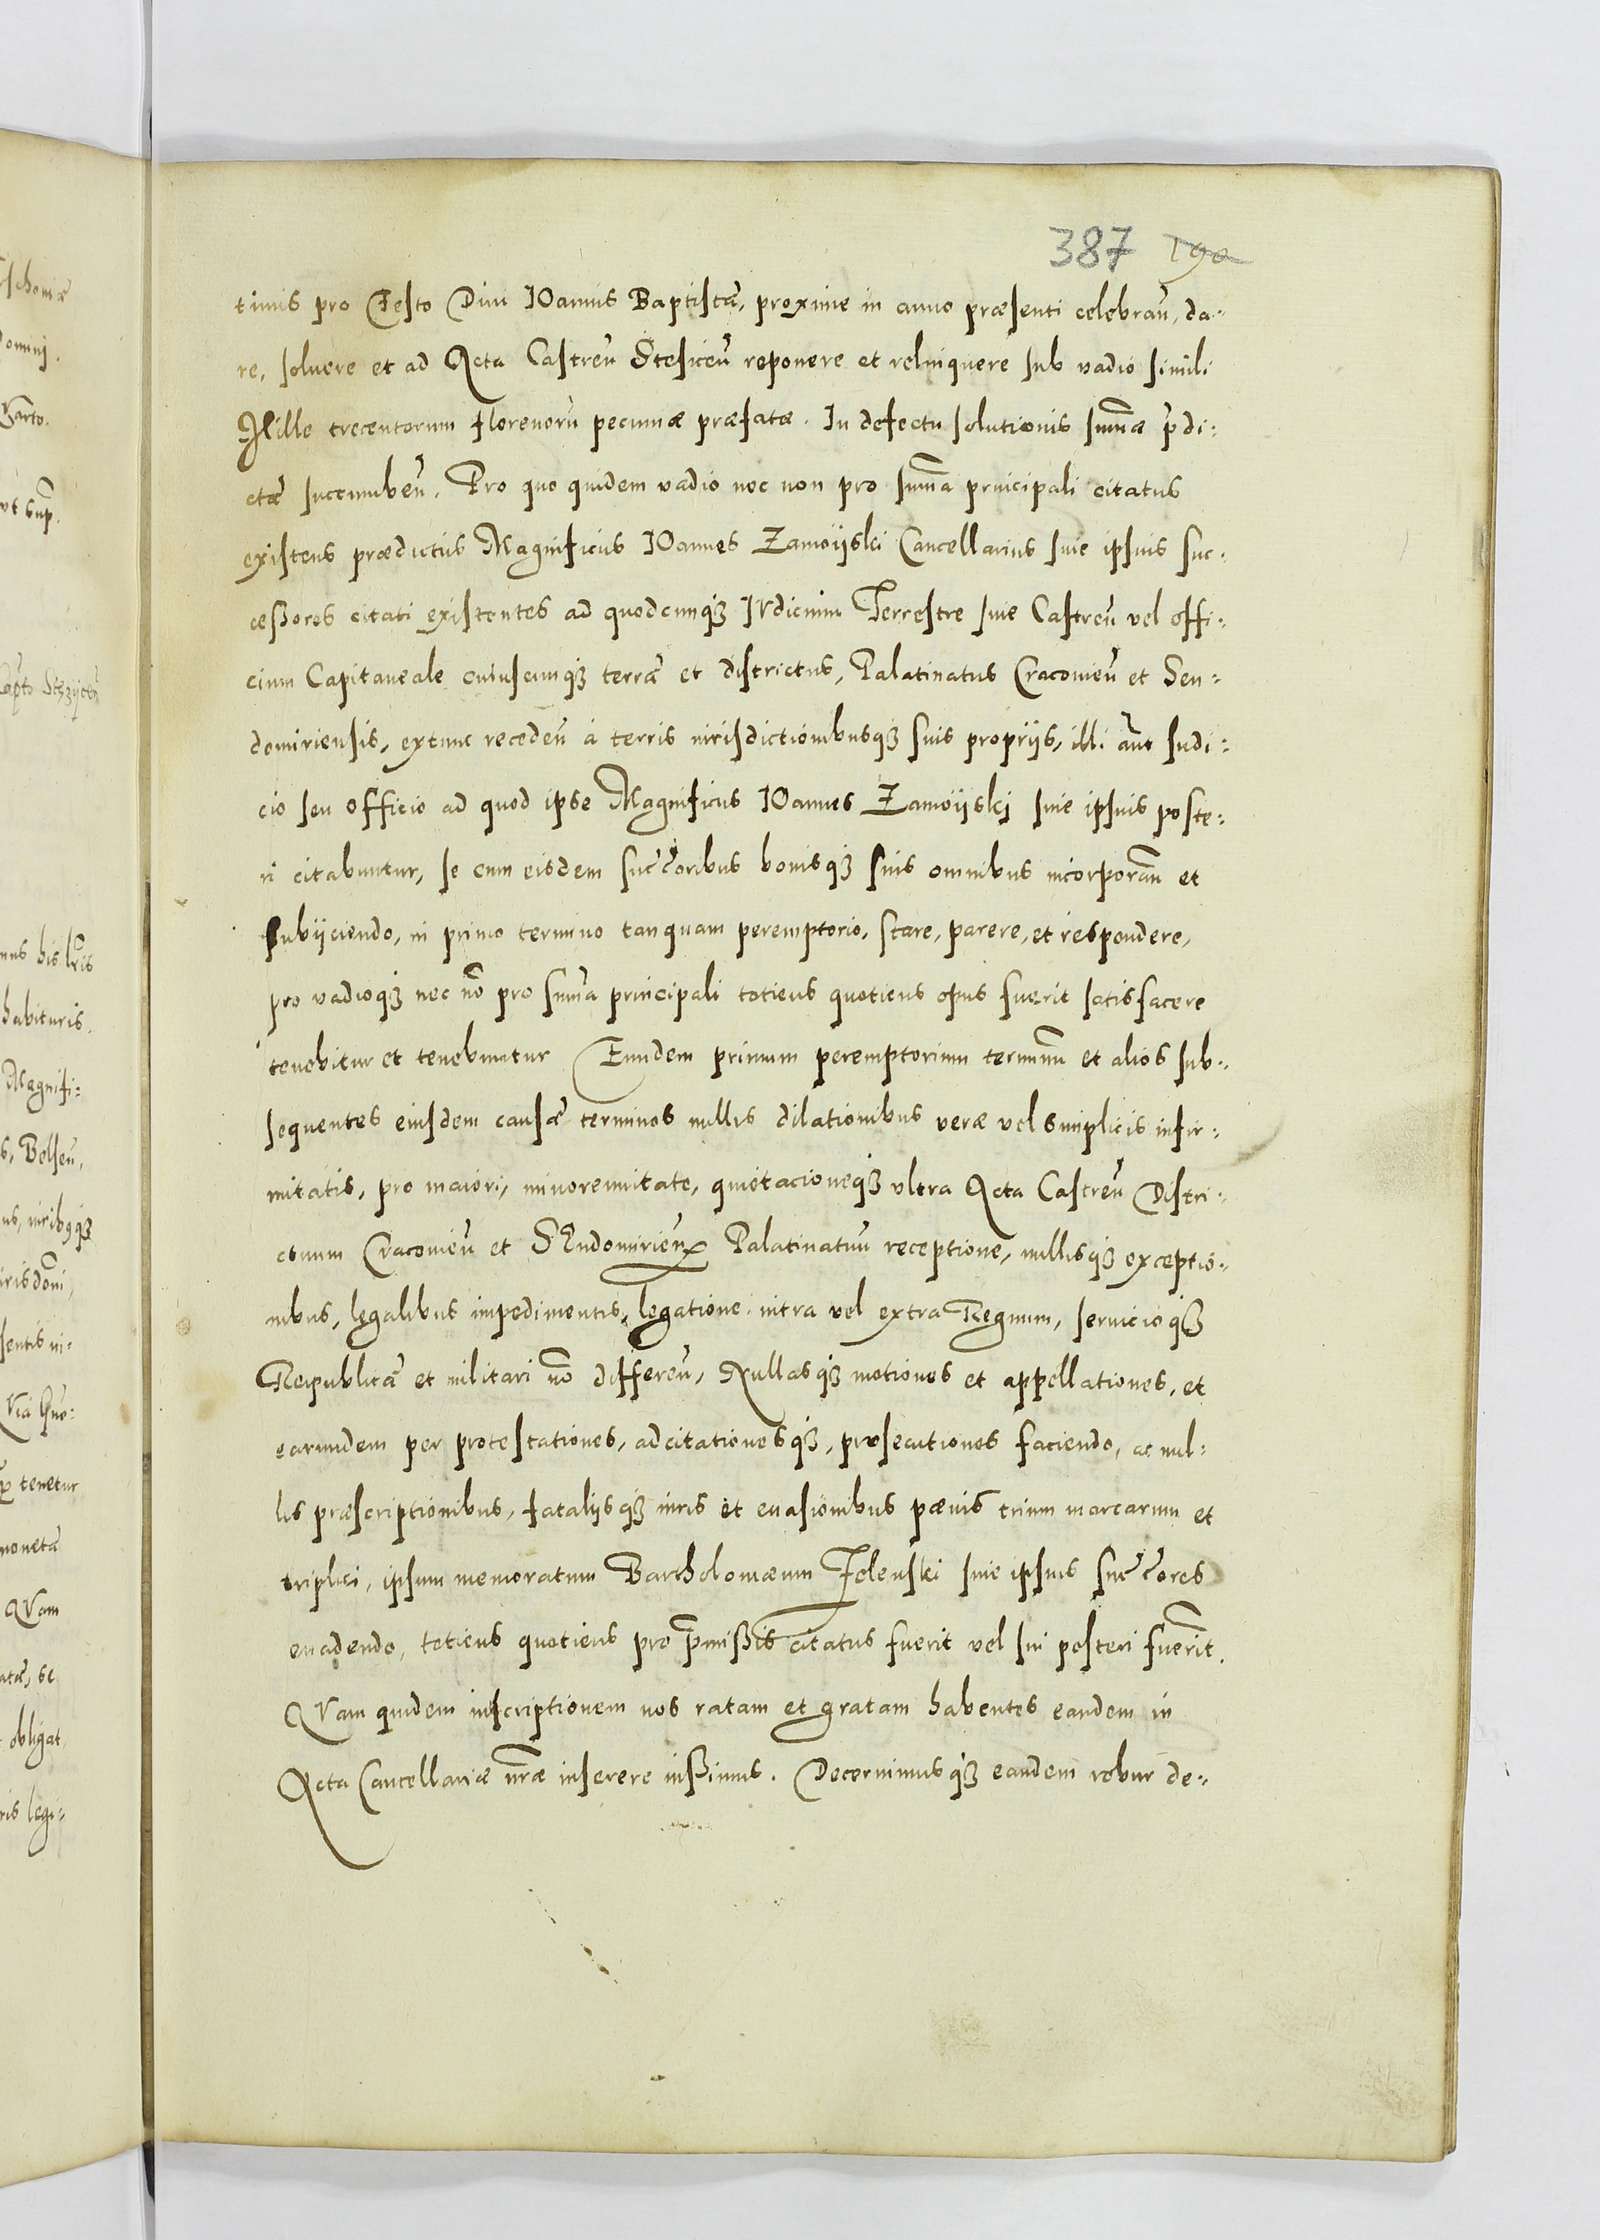 387 190
timis pro Festo Diui IOannis Baptistæ, proxime in anno præsenti celebrañ, da-
re, soluere et ad Acta Castreñ Stesiceñ reponere et relinquere sub vadio simili
Mille trecentorum florenorũ pecuniæ præfatæ. In defectu solutionis sum̃æ p̃di:
ctæ succumbeñ. Pro quo quidem vadio nec non pro sum̃a principali citatus
existens prædictus Magnificus IOannes Zamoijski Cancellarius siue ipsius suc-
cessores citati existentes ad quodcunqȝ IVdicium Terrestre siue Castreñ vel offi-
cium Capitaneale cuiuscunqȝ terræ et districtus, Palatinatus Cracouieñ et Sen-
domiriensis, extunc recedeñ à terris iurisdictionibusqȝ suis proprijs, illi aũt Iudi:
cio seu officio ad quod ipse Magnificus IOannes Zamoijskj siue ipsius poste-
ri citabuntur, se cum eisdem succ̃oribus bonisqȝ suis omnibus incorporañ et
subijciendo, in primo termino tanquam peremptorio, stare, parere, et respondere,
pro vadioqȝ nec nõ pro sum̃a principali totiens quotiens opus fuerit satisfacere
tenebitur et tenebuntur Eundem primum peremptorium terminũ et alios sub-
sequentes eiusdem causæ terminos nullis dilationibus veræ vel simplicis infir-
mitatis, pro maiori, minoreunitate, quietacioneqȝ vltra Acta Castreñ Distri-
ctuum Cracouieñ et SEndomirieñ Palatinatuũ receptione, nullisqȝ exceptio-
nibus, legalibus impedimentis, legatione intra vel extra Regnum, seruicioqȝ
Reipublicæ et militari nõ differeñ, Nullasqȝ motiones et appellationes, et
earundem per protestationes, adcitationesqȝ, prosecutiones faciendo, ac nul-
lis præscriptionibus, fatalijsqȝ iuris et euasionibus pænis trium marcarum et
triplici, ipsum memoratum Bartholomæum Zelenski siue ipsius succ̃ores
euadendo, totiens quotiens pro p̃missis citatus fuerit vel sui posteri fuerĩt.
QVam quidem inscriptionem nos ratam et gratam habentes eandem in
Acta Cancellariæ nr̃æ inserere iussimus. Decernimusqȝ eandem robur de-